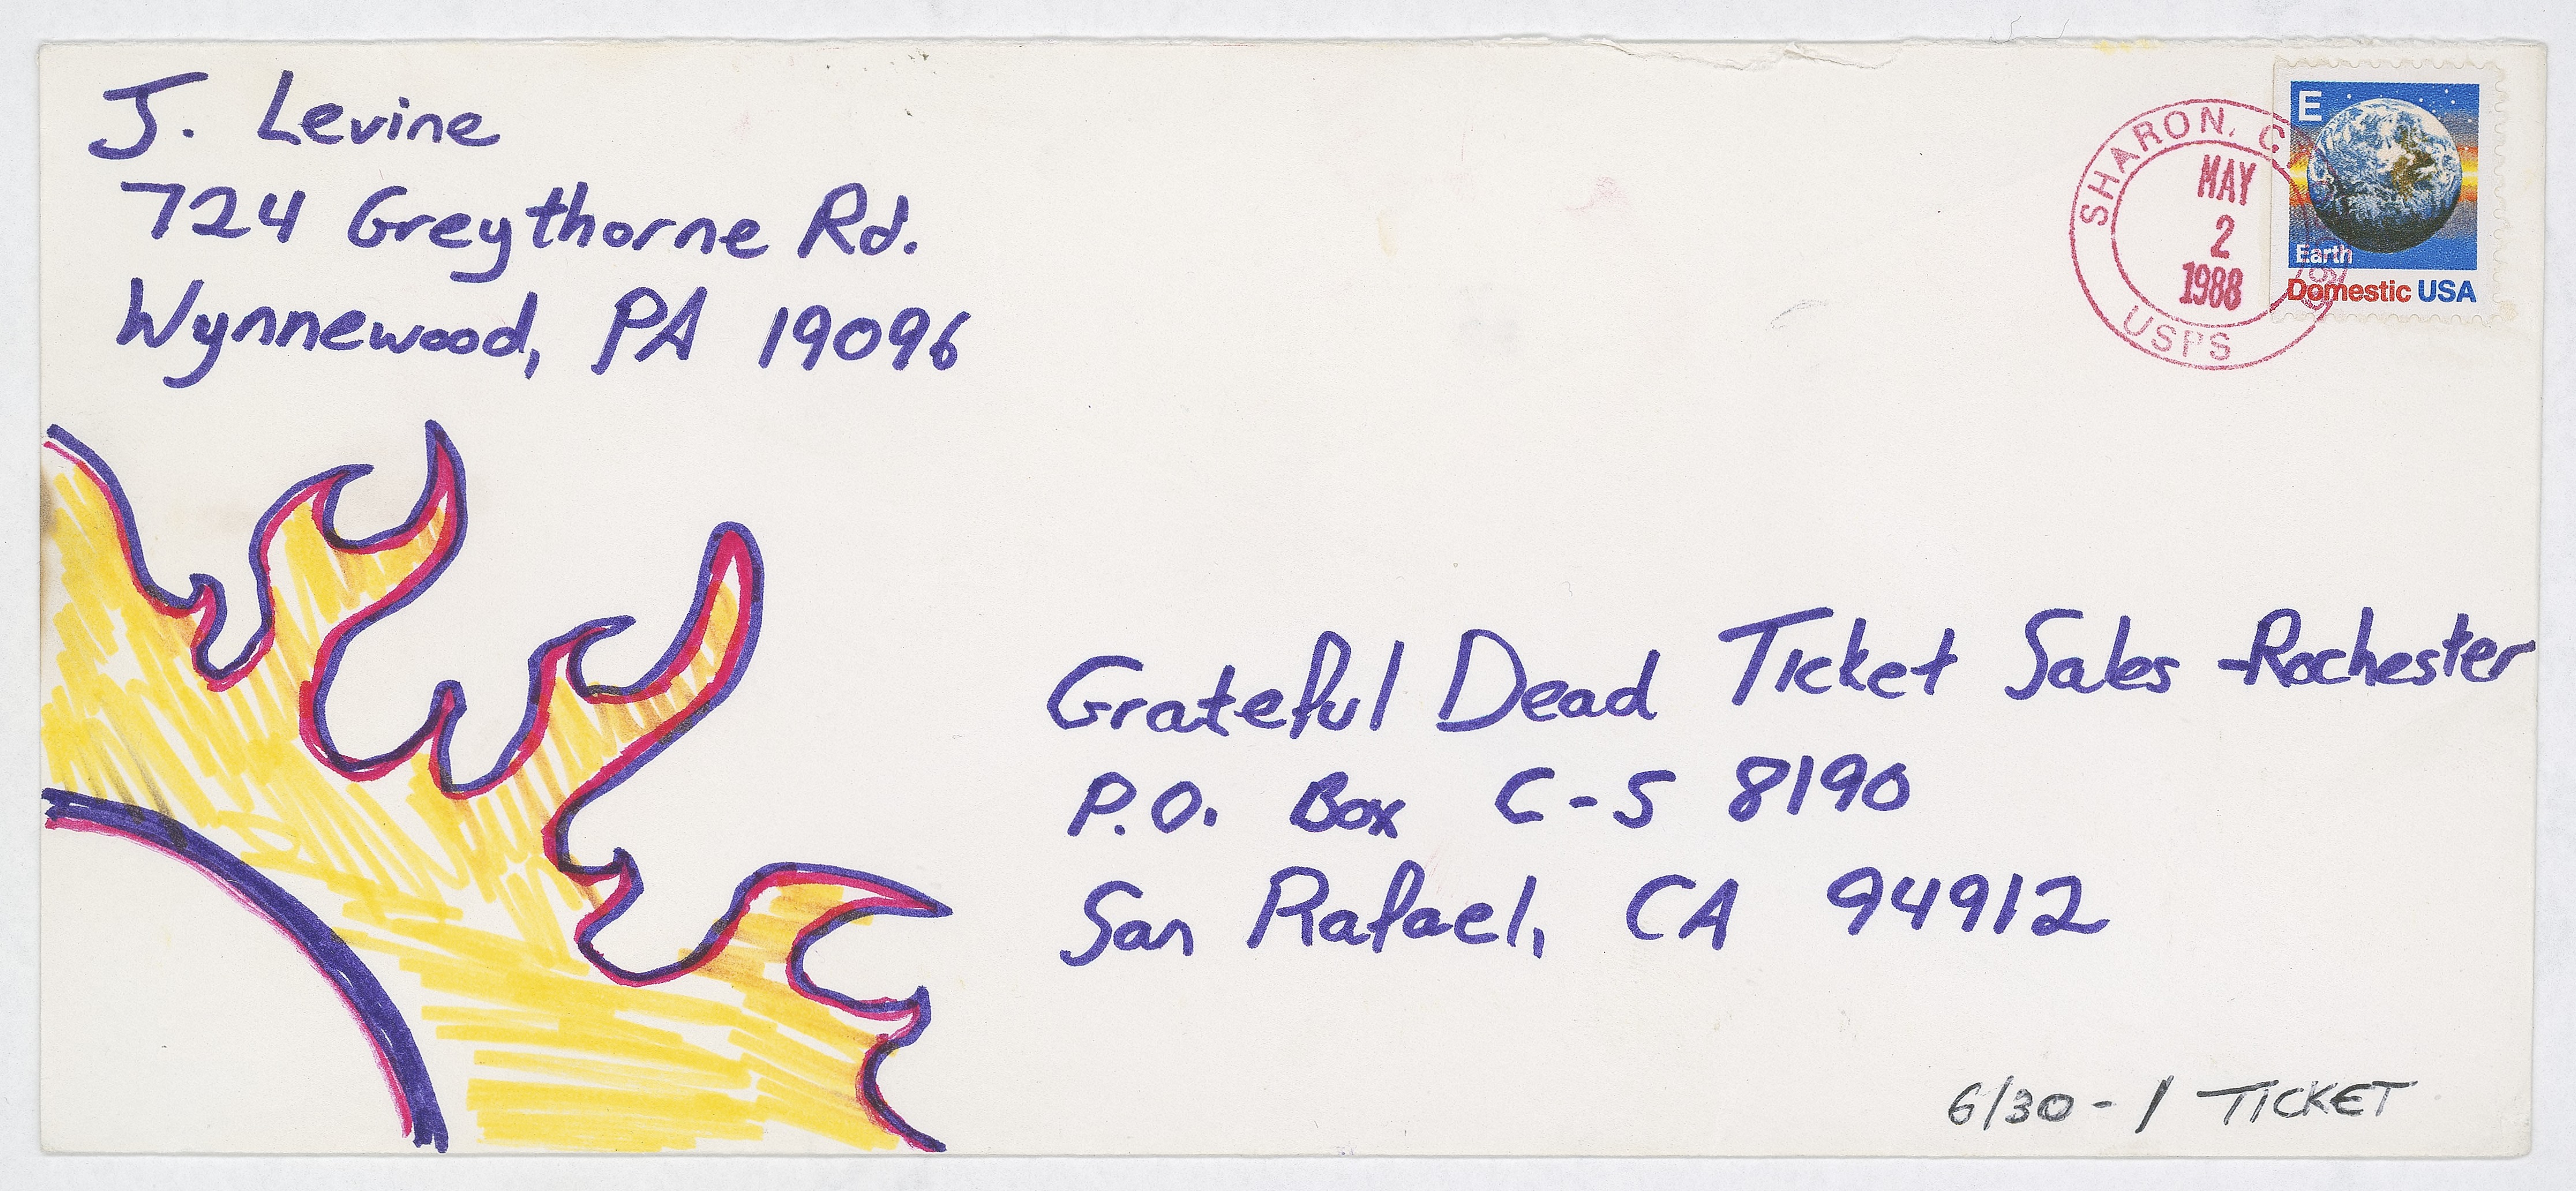 J. Levine
724 Greythorne Rd.
Wynnewood, PA 19096
SHARON, GA
MAY
2
1988
USPS
E
Earth
Domestic USA
Grateful Dead Ticket Sales -Rochester
P.O. Box C-S 8190
San Rafael, CA 94912
6/30 - 1 TICKET